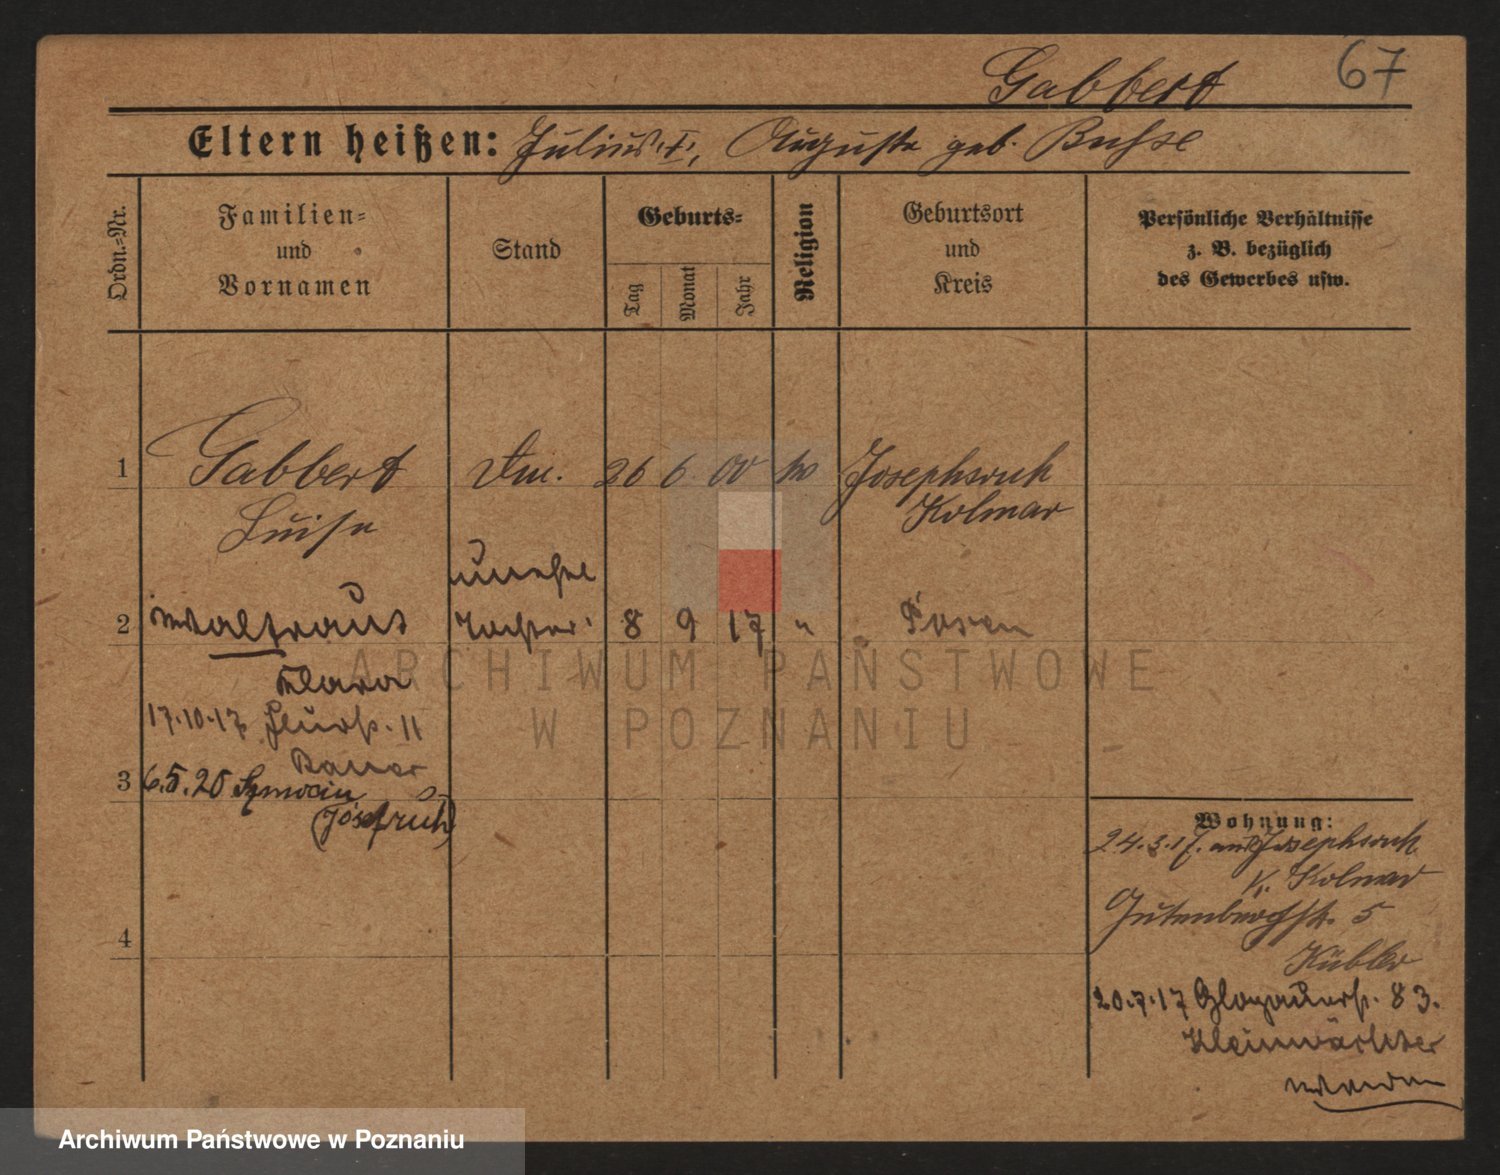 Gabbert
67
Eltern heißen: Julius †, Auguste geb. Buhse
Ordn.-Nr.
Familien-
und
Vornamen
Stand
Geburts-
Tag
Monat
Jahr
Religion
Geburtsort
und
Kreis
Persönliche Verhältnisse
z. B. bezüglich
des Gewerbes usw.
1 Gabbert 26 6 00 Josephsruh
Luise Kolmar
unehel
2 Waltraut Tochter 8 9 17 " Posen
Klara
17.10.17 11
Bauer
3 6.5.20
(Josefruh)
4
Wohnung:
24.3.17. aus Josephsruh
K. Kolmar
Gutenbergstr. 5
Kübler
20.7.17 Glogauerstr. 83.
Kleinwächter
ARCHIWUM PAŃSTWOWE
W POZNANIU
Archiwum Państwowe w Poznaniu